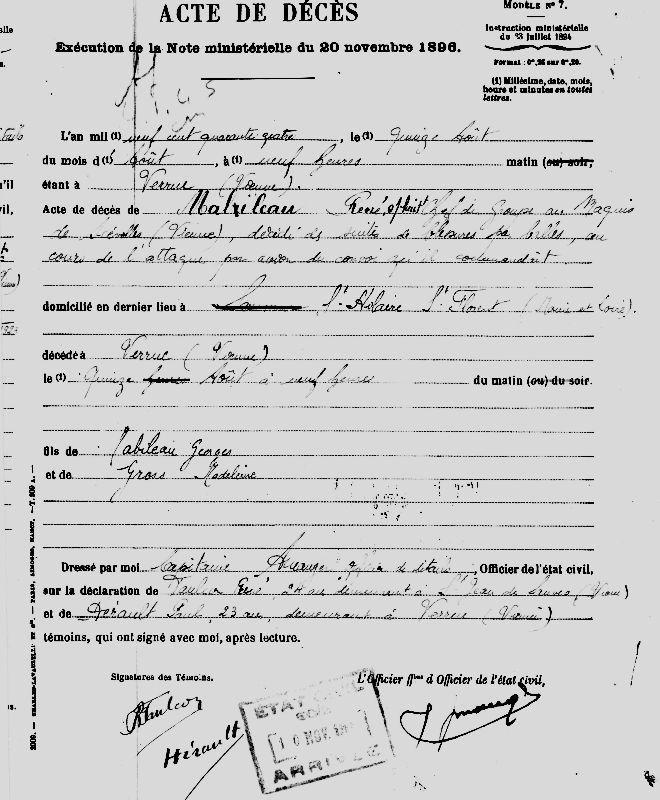 ACTE DE DÉCÈS
MODÈLE Nº 7.
Instruction ministérielle
du 23 juillet 1894
Exécution de la Note ministérielle du 20 novembre 1896.
Format : 0ᵐ,26 sur 0ᵐ,20.
(1) Millésime, date, mois,
heures et minutes en toutes
lettres.
L'an mil (1) neuf cent quarante quatre, le (1) quinze Août
du mois d (1) Août, à (1) neuf heures matin (ou) soir,
étant à Verrue (Vienne).
Acte de décès de Mabileau René, Chef de Groupe au Maquis
de (Vienne), décédé des suites de blessures par balles, au
cours de l'attaque par avion du convoi qu'il commandait
domicilié en dernier lieu à St Hilaire St Florent (Maine et Loire).
décédé à Verrue (Vienne)
le (1) Quinze heures Août à neuf heures du matin (ou) du soir.
fils de Mabileau Georges
et de Gross Madeleine
Dressé par moi Capitaine officier de détails, Officier de l'état civil,
sur la déclaration de 24 ans demeurant à St Jean de Sauves (Vienne)
et de Hérault Paul, 23 ans, demeurant à Verrue (Vienne)
témoins, qui ont signé avec moi, après lecture.
Signatures des Témoins.
L'Officier ffons d'Officier de l'état civil,
Hérault
ETAT CIVIL
10 NOV.
ARRIVÉE